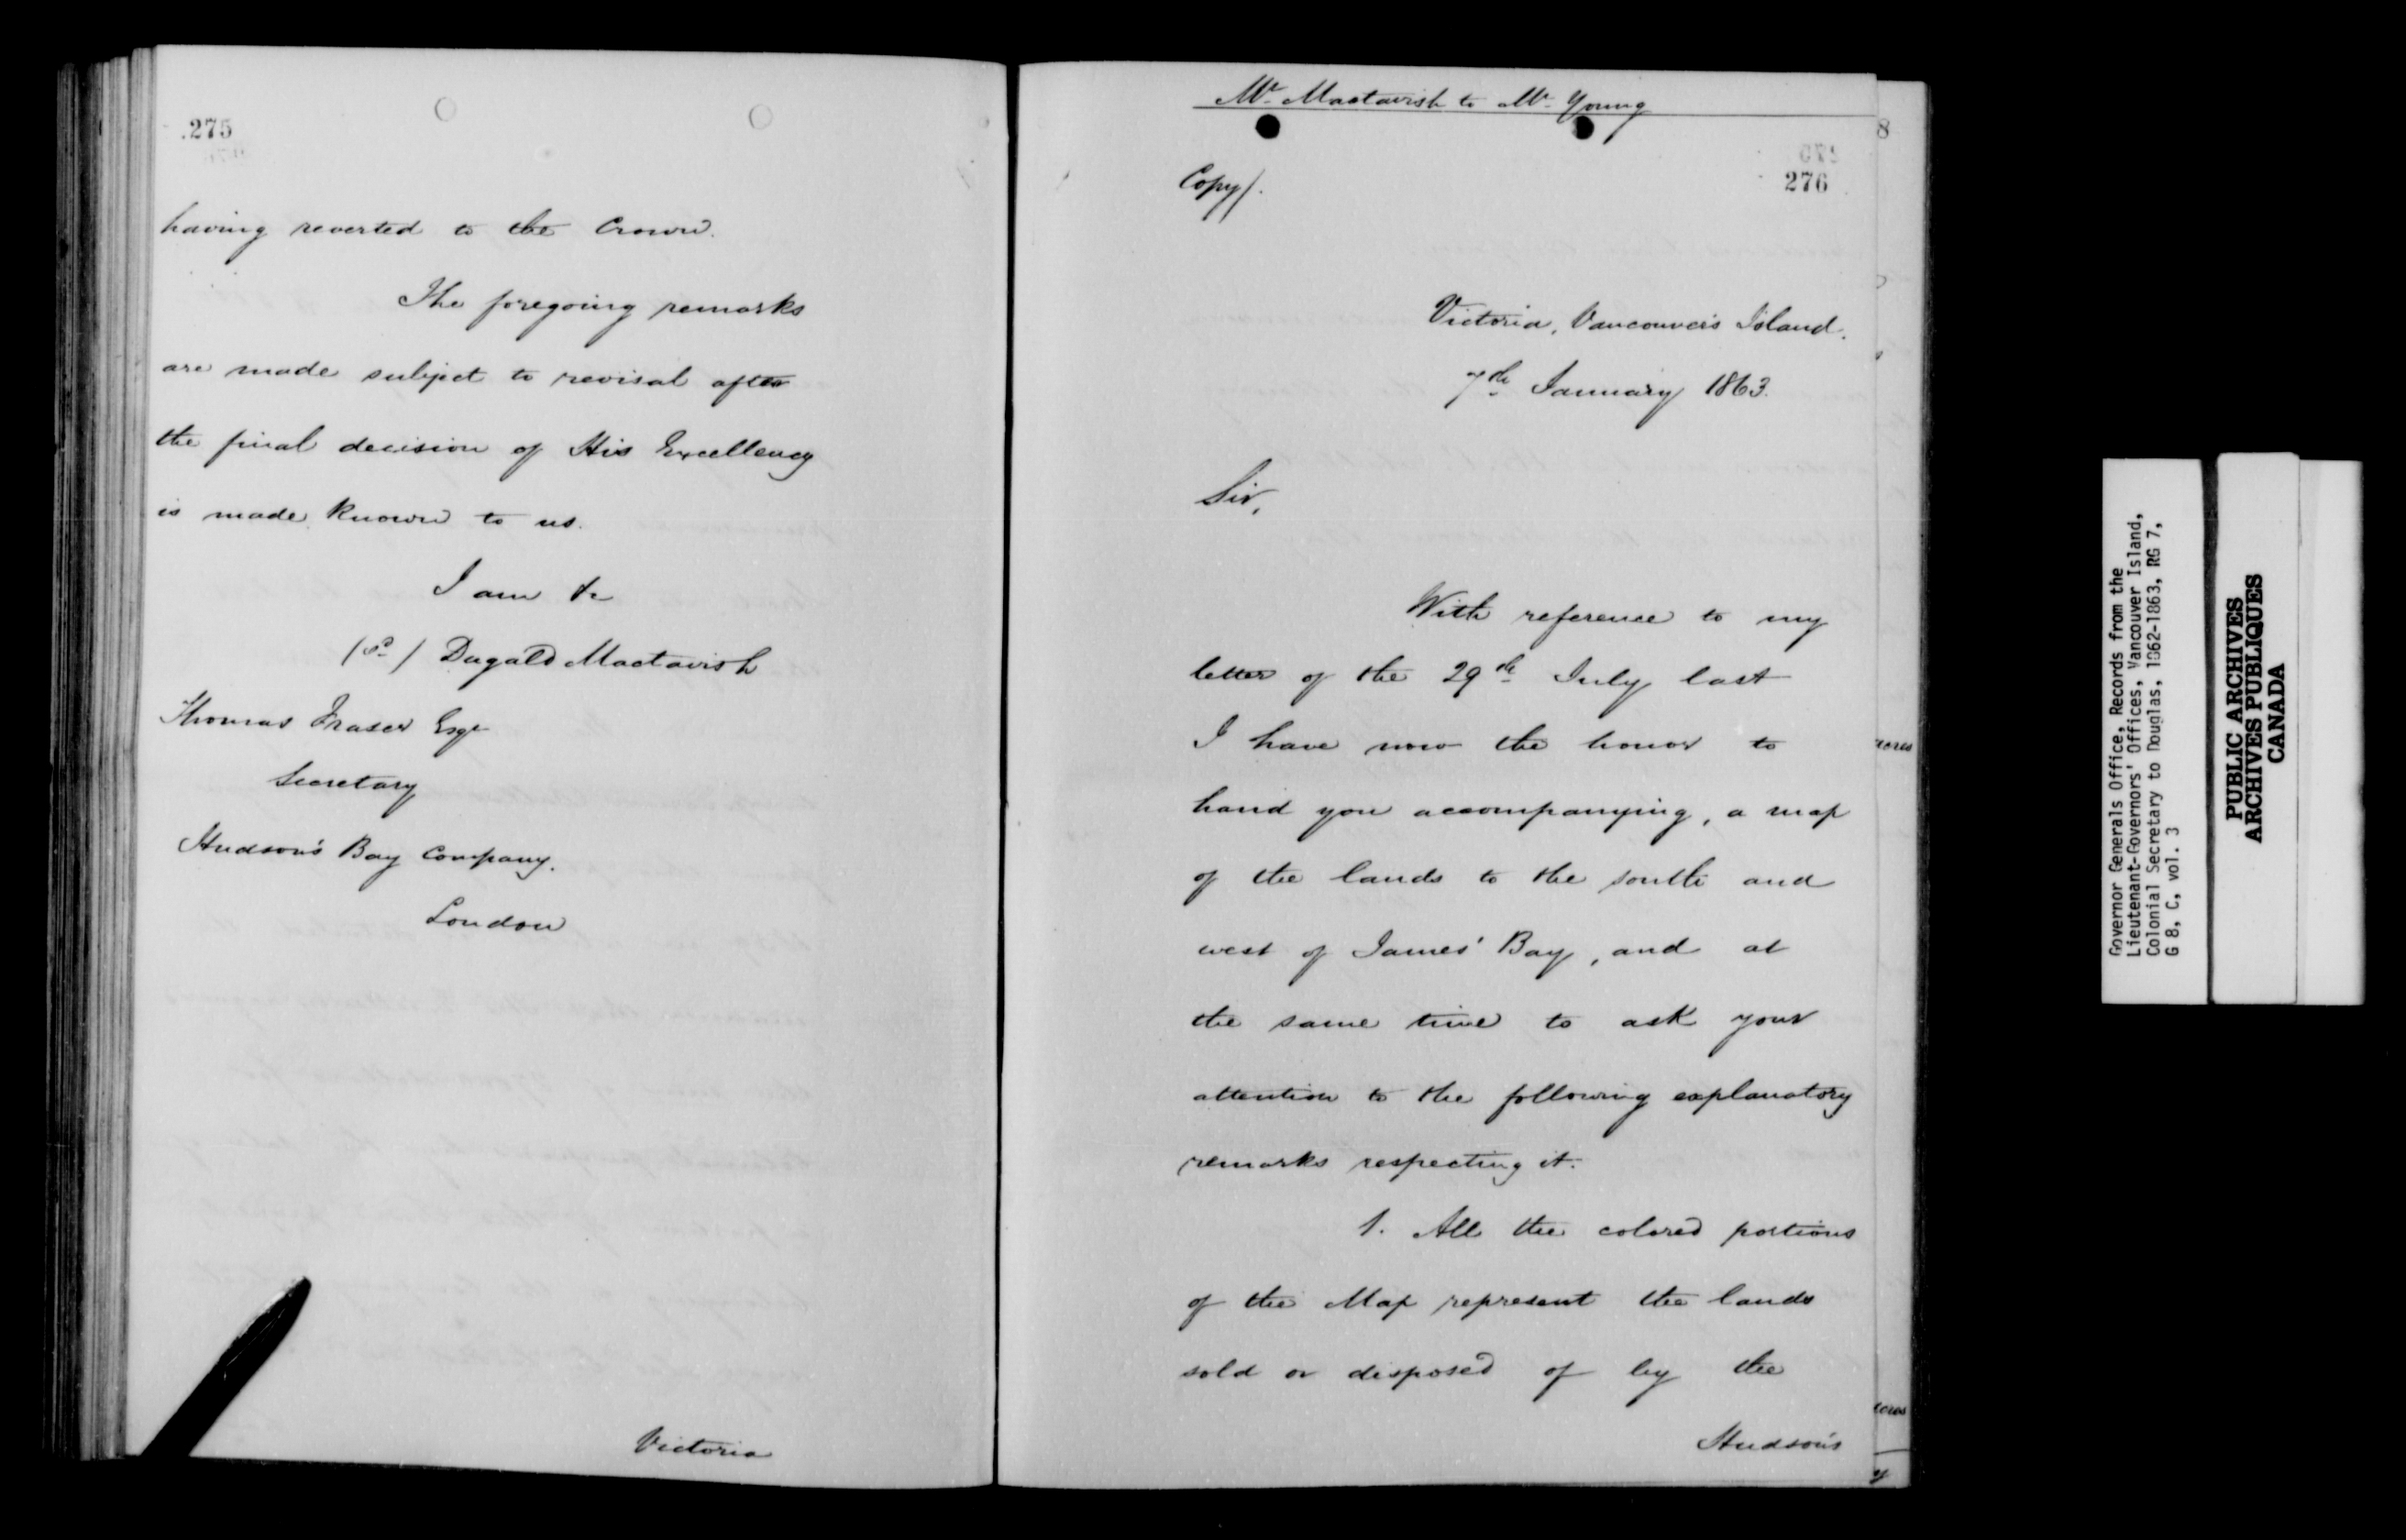 275
having reverted to the Crown.
The foregoing remarks
are made subject to revisal after
the final decision of His Excellency
is made known to us.
I am &c
(Sd) Dugald Mactavish
Thomas Fraser Esqr
Secretary
Hudson's Bay Company.
London
Victoria
Mr Mactavish to Mr Young
276
Copy/.
Victoria, Vancouver's Island.
7th January 1863.
Sir,
With reference to my
letter of the 29th July last
I have now the honor to
hand you accompanying, a map
of the lands to the south and
west of James' Bay, and at
the same time to ask your
attention to the following explanatory
remarks respecting it.
1. All the colored portions
of the Map represent the lands
sold or disposed of by the
Hudson's
8
acres
acres
Governor Generals Office, Records from the
Lieutenant-Governors' Offices, Vancouver Island,
Colonial Secretary to Douglas, 1862-1863, RG 7,
G 8, C, vol. 3
PUBLIC ARCHIVES
ARCHIVES PUBLIQUES
CANADA